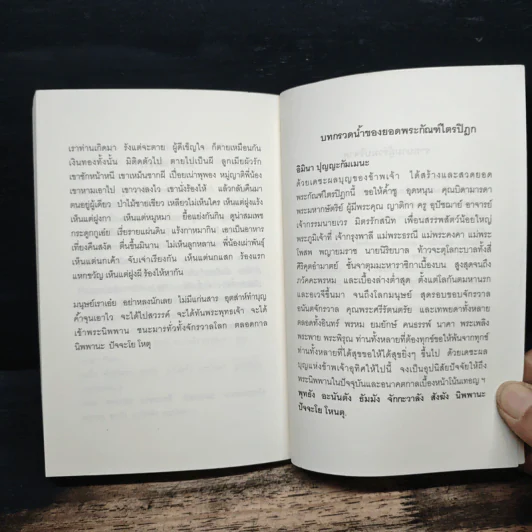 เราท่านเกิดมา รังแต่จะตาย ผู้ดีเข็ญใจ ก็ตายเหมือนกัน
เงินทองทั้งนั้น มิติดตัวไป ตายไปเป็นผี ลูกเมียผัวรัก
เขาชักหน้าหนี เขาเหม็นซากผี เปื่อยเน่าพุพอง หมู่ญาติพี่น้อง
เขาหามเอาไป เขาวางลงไว้ เขานั่งร้องไห้ แล้วกลับคืนมา
ตนอยู่ผู้เดียว ป่าไม้ชายเขียว เหลียวไม่เห็นใคร เห็นแต่ฝูงแร้ง
เห็นแต่ฝูงกา เห็นแต่หมูหมา ยื้อแย่งกันกิน ดูน่าสมเพช
กระดูกกูเอ๋ย เรี่ยรายแผ่นดิน แร้งกาหมากิน เอาเป็นอาหาร
เที่ยงคืนสงัด ตื่นขึ้นมินาน ไม่เห็นลูกหลาน พี่น้องเผ่าพันธุ์
เห็นแต่นกเค้า จับเจ่าเรียงกัน เห็นแต่นกแสก ร้องแรก
แหกขวัญ เห็นแต่ฝูงผี ร้องไห้หากัน
มนุษย์เราเอ๋ย อย่าหลงนักเลย ไม่มีแก่นสาร อุตส่าห์ทำบุญ
ค้ำจุนเอาไว้ จะได้ไปสวรรค์ จะได้ทันพระพุทธเจ้า จะได้
เข้าพระนิพพาน ชนะมารทั่วทั้งจักรวาลโลก ตลอดกาล
นิพพานะ ปัจจะโย โหตุ
บทกรวดน้ำของยอดพระกัณฑ์ไตรปิฎก
อิมินา ปุญญะกัมเมนะ
ด้วยเดชะผลบุญของข้าพเจ้า ได้สร้างและสวดยอด
พระกัณฑ์ไตรปิฎกนี้ ขอให้ค้ำชู อุดหนุน คุณบิดามารดา
พระมหากษัตริย์ ผู้มีพระคุณ ญาติกา ครู อุปัชฌาย์ อาจารย์
เจ้ากรรมนายเวร มิตรรักสนิท เพื่อนสรรพสัตว์น้อยใหญ่
พระภูมิเจ้าที่ เจ้ากรุงพาลี แม่พระธรณี แม่พระคงคา แม่พระ
โพสพ พญายมราช นายนิริยบาล ท้าวจตุโลกะบาลทั้งสี่
ศิริคุตอำมาตย์ ชั้นจาตุมมะหาราชิกาเบื้องบน สูงสุดจนถึง
ภวัคคะพรหม และเบื้องล่างต่ำสุด ตั้งแต่โลกันตมหานรก
และอเวจีขึ้นมา จนถึงโลกมนุษย์ สุดรอบขอบจักรวาล
อนันตจักรวาล คุณพระศรีรัตนตรัย และเทพยดาทั้งหลาย
ตลอดทั้งอินทร์ พรหม ยมยักษ์ คนธรรพ์ นาคา พระเพลิง
พระพาย พระพิรุณ ท่านทั้งหลายที่ต้องทุกข์ขอให้พ้นจากทุกข์
ท่านทั้งหลายที่ได้สุขขอให้ได้สุขยิ่งๆ ขึ้นไป ด้วยเดชะผล
บุญแห่งข้าพเจ้าอุทิศให้ไปนี้ จงเป็นอุปนิสัยปัจจัยให้ถึง
พระนิพพานในปัจจุบันและอนาคตกาลเบื้องหน้าโน้นเทอญ ฯ
พุทธัง อะนันตัง ธัมมัง จักกะวาลัง สังฆัง นิพพานะ
ปัจจะโย โหนตุ.